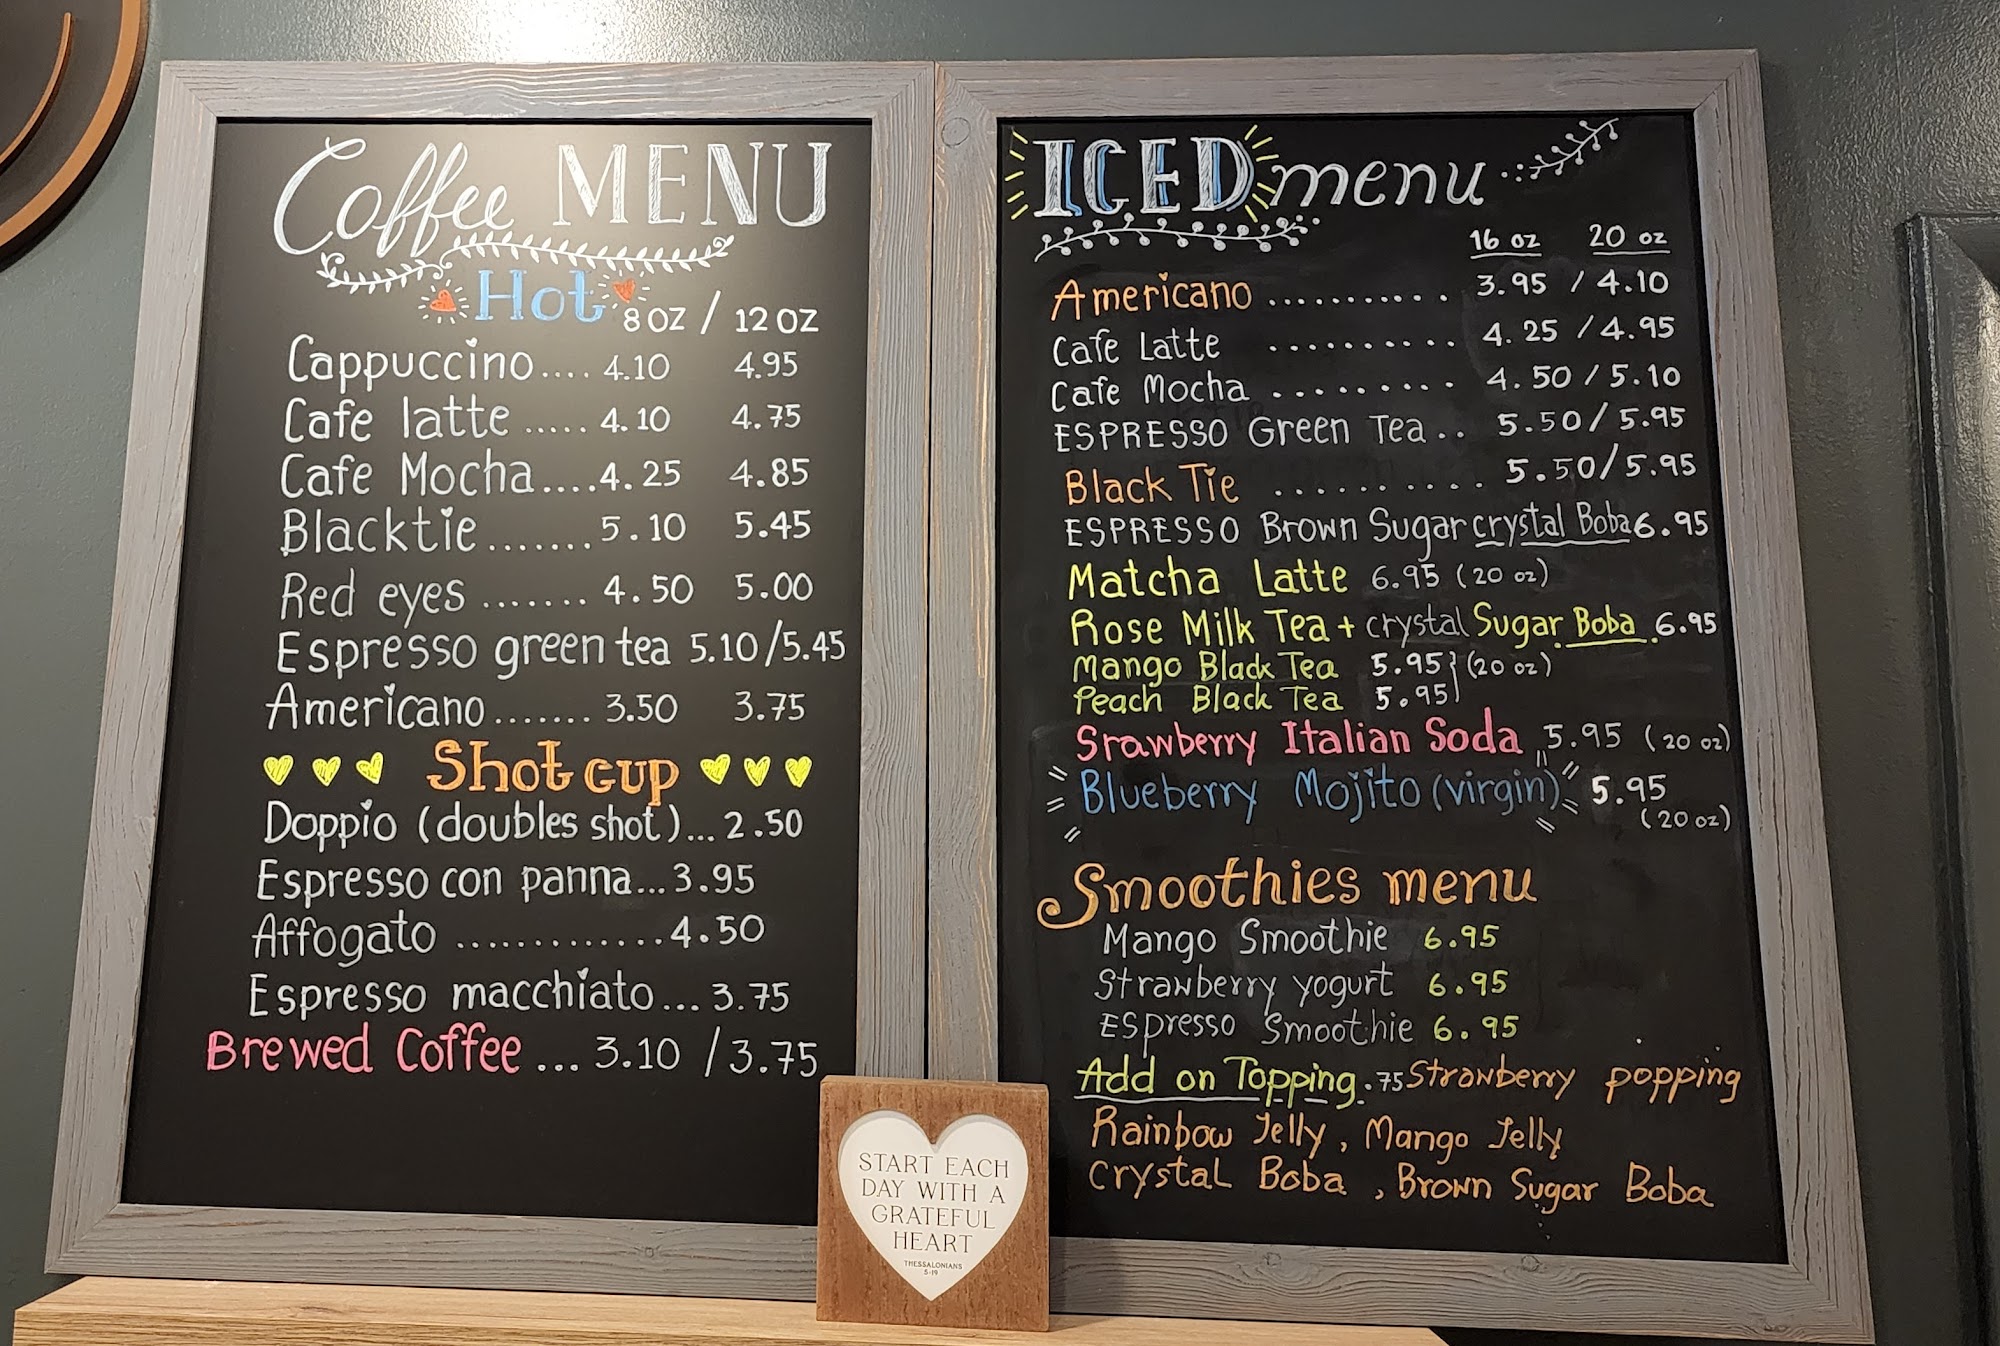 Coffee MENU
Hot 8 OZ / 12 OZ
Cappuccino.... 4.10 4.95
Cafe latte ..... 4.10 4.75
Cafe Mocha....4.25 4.85
Blacktie .......5.10 5.45
Red eyes ....... 4.50 5.00
Espresso green tea 5.10/5.45
Americano....... 3.50 3.75
Shot cup
Doppio (doubles shot)...2.50
Espresso con panna...3.95
Affogato .............4.50
Espresso macchiato...3.75
Brewed Coffee ... 3.10 /3.75
ICED menu
16 oz 20 oz
Americano ........... 3.95 / 4.10
Cafe Latte .......... 4.25 / 4.95
Cafe Mocha ......... 4.50 / 5.10
ESPRESSO Green Tea.. 5.50/5.95
Black Tie .......... 5.50/5.95
ESPRESSO Brown Sugar crystal Boba 6.95
Matcha Latte 6.95 (20 oz)
Rose Milk Tea + crystal Sugar Boba 6.95
Mango Black Tea 5.95} (20 oz)
Peach Black Tea 5.95
Srawberry Italian Soda 5.95 (20 oz)
Blueberry Mojito (virgin) 5.95
(20 oz)
Smoothies menu
Mango Smoothie 6.95
Strawberry yogurt 6.95
Espresso Smoothie 6.95
Add on Topping .75 Strawberry popping
Rainbow Jelly, Mango Jelly
Crystal Boba, Brown Sugar Boba
START EACH
DAY WITH A
GRATEFUL
HEART
THESSALONIANS
5-19